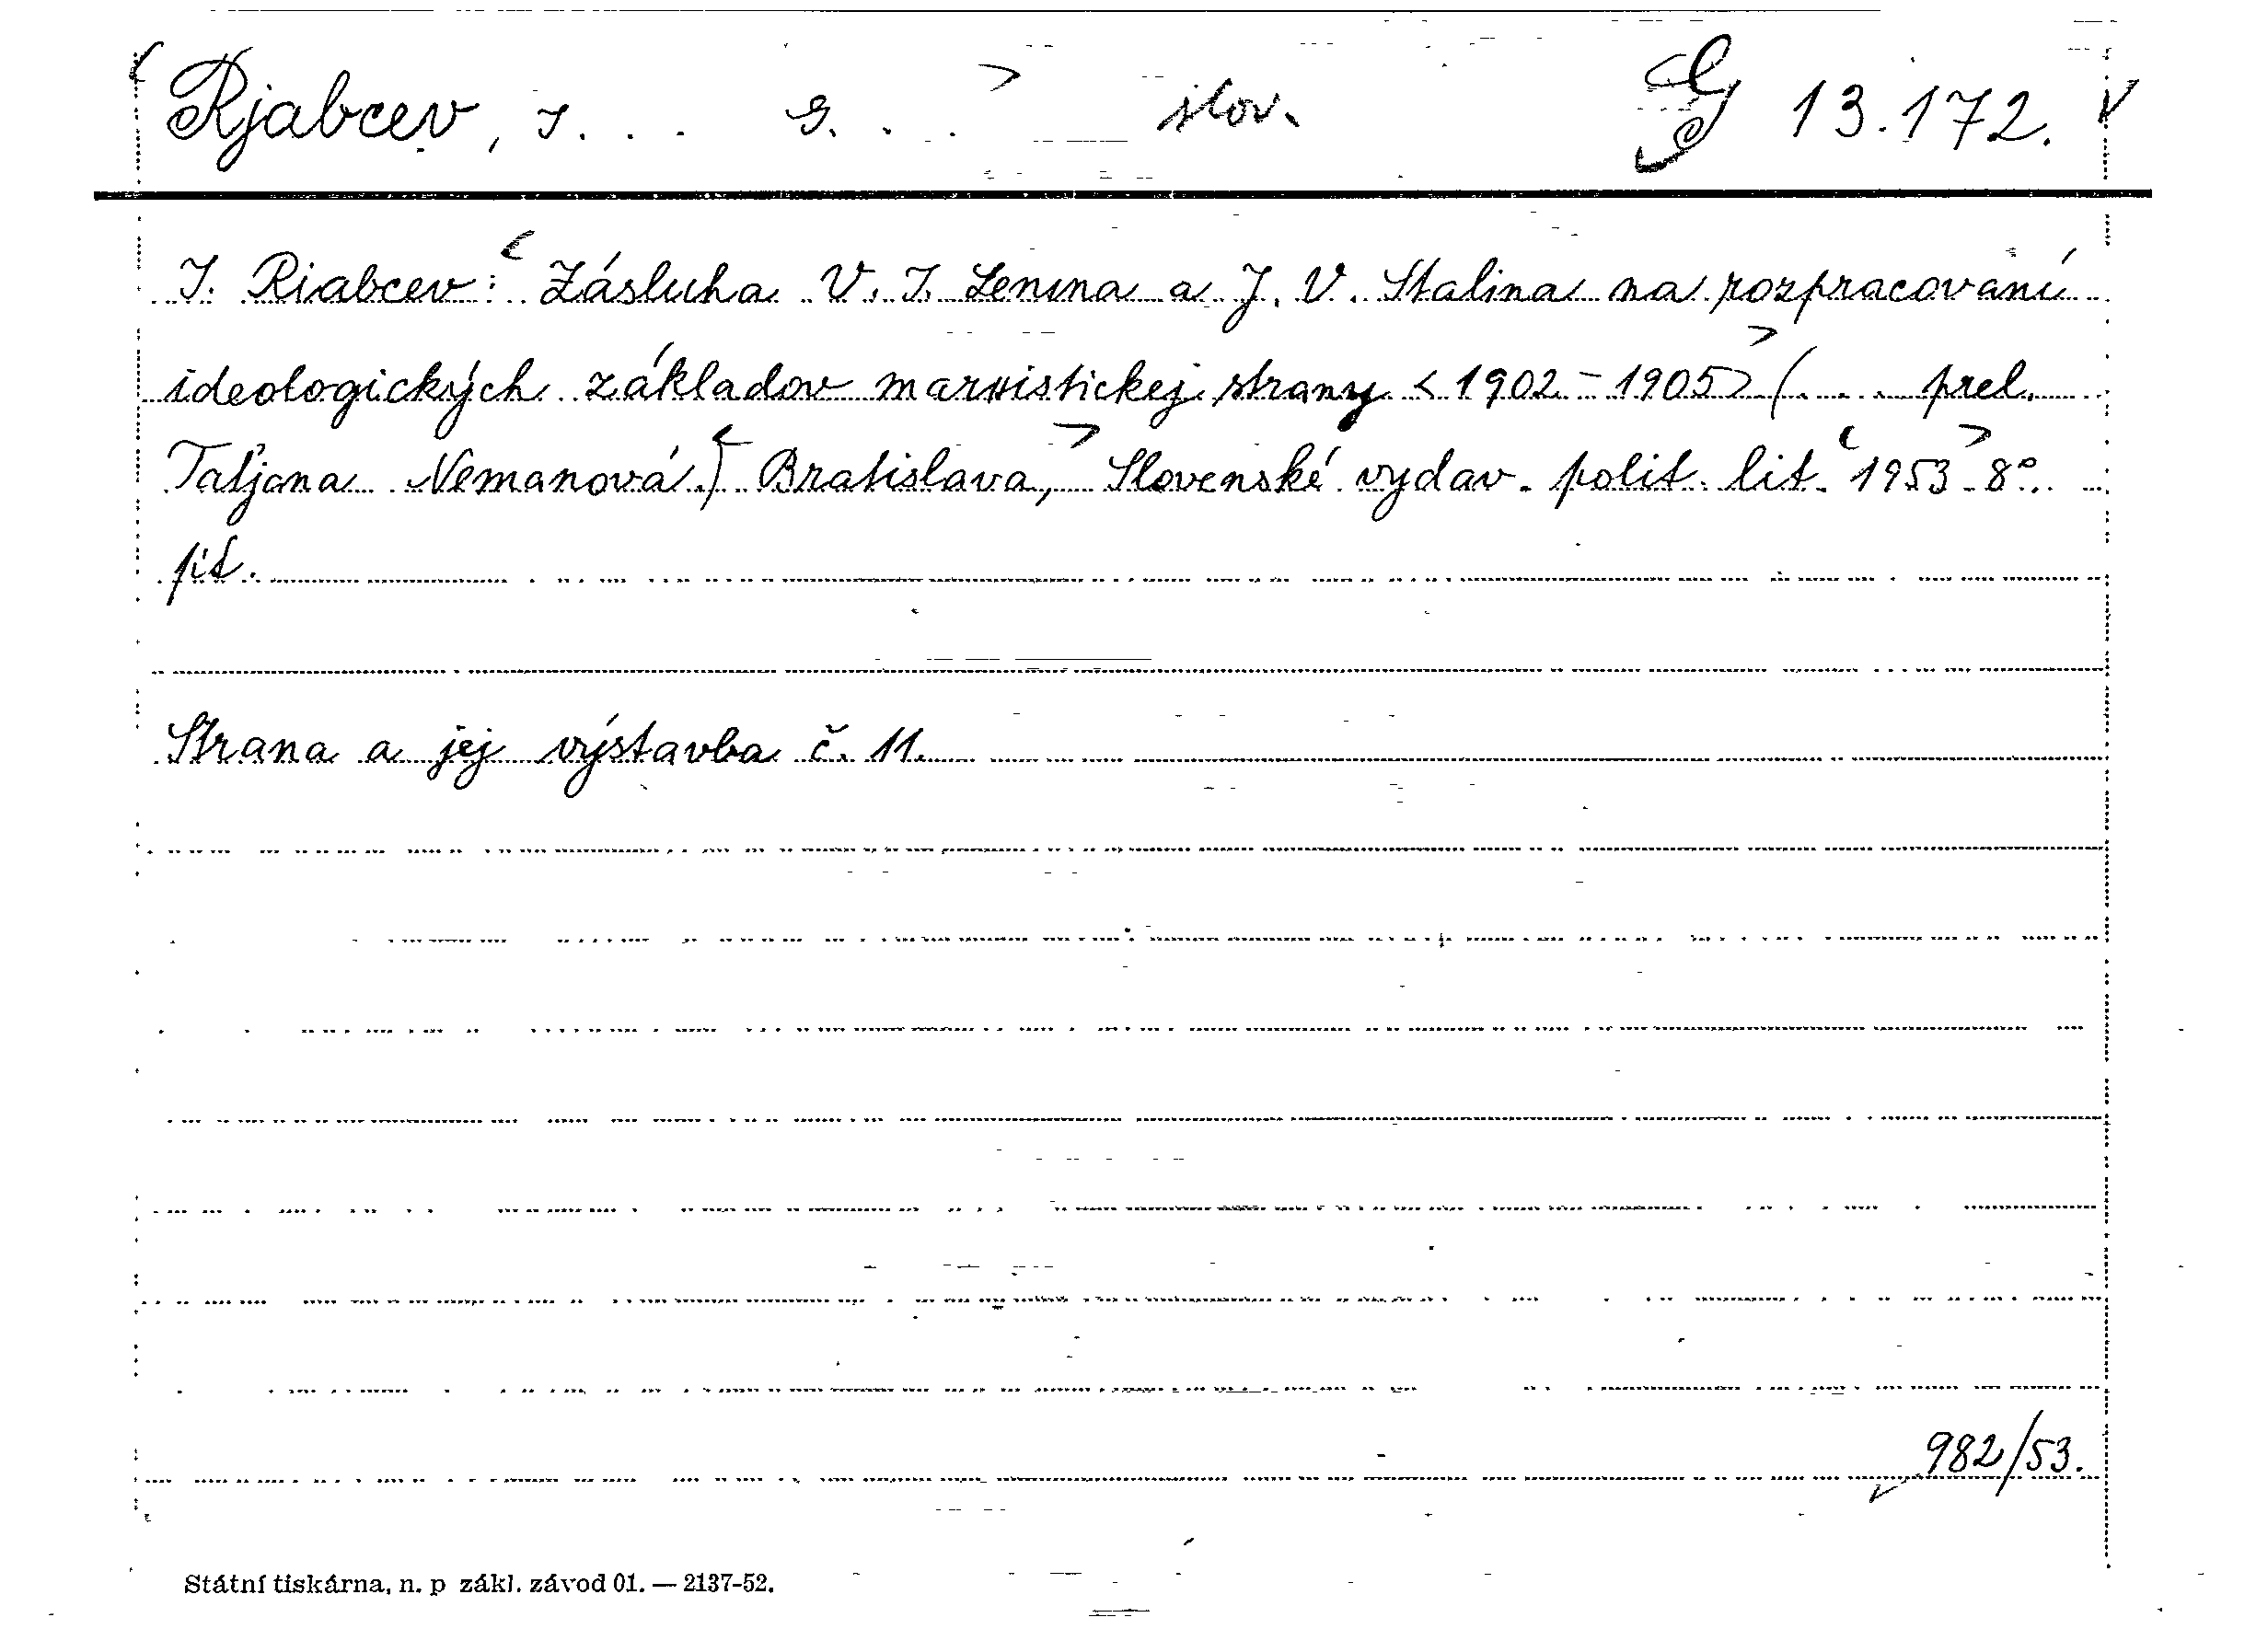 Rjabcev, I. . . G. . . slov. G 13.172.
I. Riabcev: Zásluha V. I. Lenina a J. V. Stalina na rozpracovaní
ideologických základov marxistickej strany <1902-1905> (. . . prel.
Taťjana Nemanová.) Bratislava, Slovenské vydav. polit. lit. 1953 8°.
fit.
Strana a jej výstavba č. 11.
982/53.
Státní tiskárna, n. p zákl. závod 01. — 2137-52.